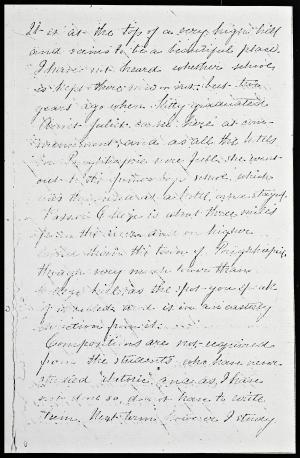 It is at the top of a very high hill
and seems to be a beautiful place.
I have not heard whether school
is kept there now or not: but two
years ago when Kitty graduated
Aunt Juliet came here at com-
mencement and as all the hotels
in Poughkeepsie were full she went
out to the former boys school which
was then used as a hotel, and stayed.
Vassar College is about three miles
from the river and on higher
land than the town of Poughkeepsie
though very much lower than
College hill, as the spot you
is called and it is in an easterly
direction from it.
Compositions are not required
from the students who have never
studied rhetoric, and as I have
not done so, do not have to write
them. Next term however I study